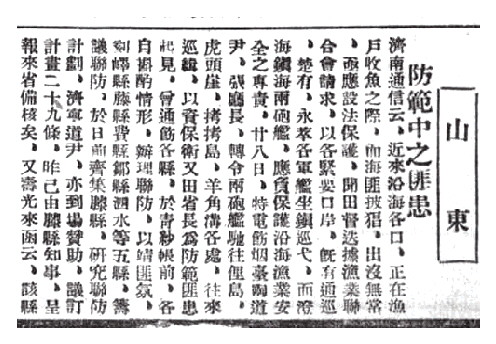 山東
防範中之匪患
濟南通信云、近來沿海各口、正在漁
戶收魚之際、而海匪披猖、出沒無常
、亟應設法保護、聞田督選據漁業聯
合會請求、以各緊要口岸、既有通巡
、楚有、永翠各軍艦坐鎮巡弋、而澄
海鎮海兩砲艦、應負保護沿海漁業安
全之專責、廿八日、特電飭烟臺道
尹、張廳長、轉令兩砲艦馳往俚島、
虎頭崖、拷拷島、羊角溝各處、往來
巡緝、以資保衛又田省長為防範匪患
起見、曾通飭各縣、於青紗帳前、各
自斟酌情形、辦理聯防、以靖匪氛、
嶧縣滕縣費縣鄒縣泗水等五縣、籌
議聯防、於日前齊集滕縣、研究聯防
計劃、濟寧道尹、亦到場贊助、議訂
計畫二十九條、昨已由滕縣知事、呈
報來省備核矣、又壽光來函云、該縣